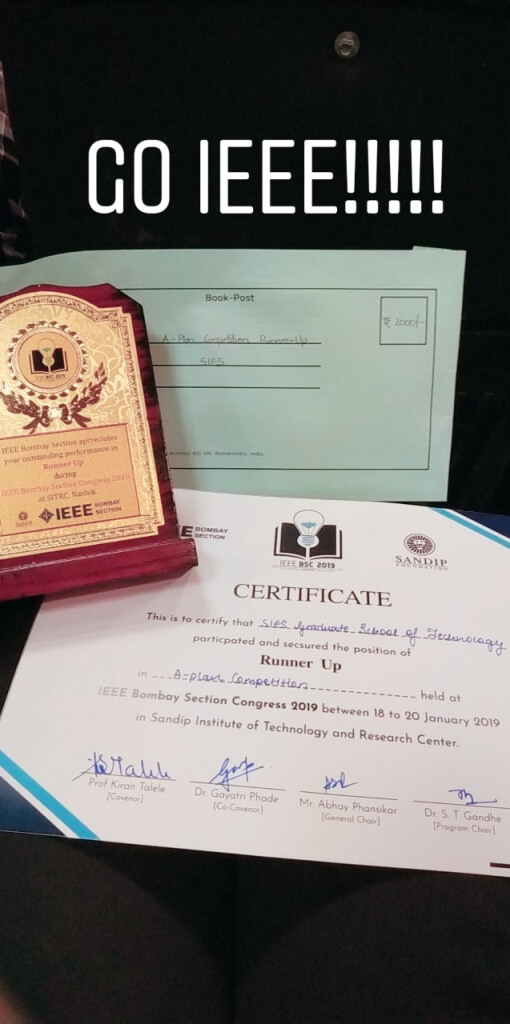 GO IEEE!!!!!
Book-Post
₹ 2000/-
A-Plan Competition Runner-Up
SIES
IEEE BSC 2019
IEEE Bombay Section appreciates
your outstanding performance as
Runner Up
during
IEEE Bombay Section Congress 2019
at SITRC, Nashik.
IEEE BOMBAY
SECTION
E BOMBAY
SECTION
IEEE BSC 2019
SANDIP
FOUNDATION
CERTIFICATE
This is to certify that SIES Graduate School of Technology
particpated and secsured the position of
Runner Up
in A-plan Competition held at
IEEE Bombay Section Congress 2019 between 18 to 20 January 2019
in Sandip Institute of Technology and Research Center.
Prof Kiran Talele
[Covenor]
Dr. Gayatri Phade
[Co-Covenor]
Mr. Abhay Phansikar
[General Chair]
Dr. S. T. Gandhe
[Program Chair]